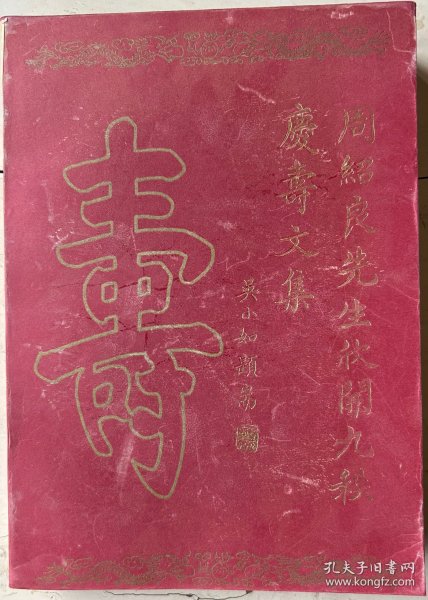 周紹良先生欣開九秩
慶壽文集
吳小如題
壽
孔夫子旧书网
www.kongfz.com